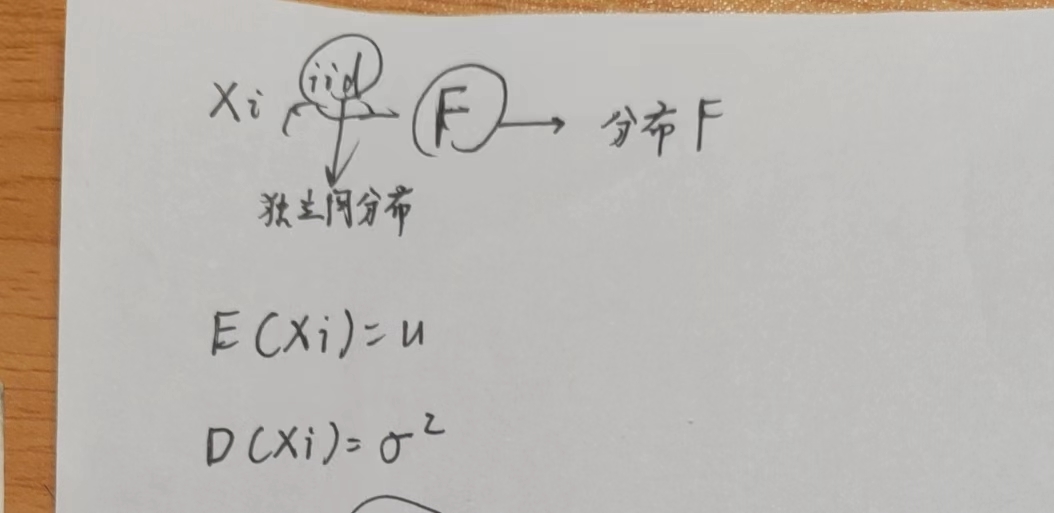 Xi iid ~ F → 分布 F
独立同分布
E(Xi)=u
D(Xi)=σ²